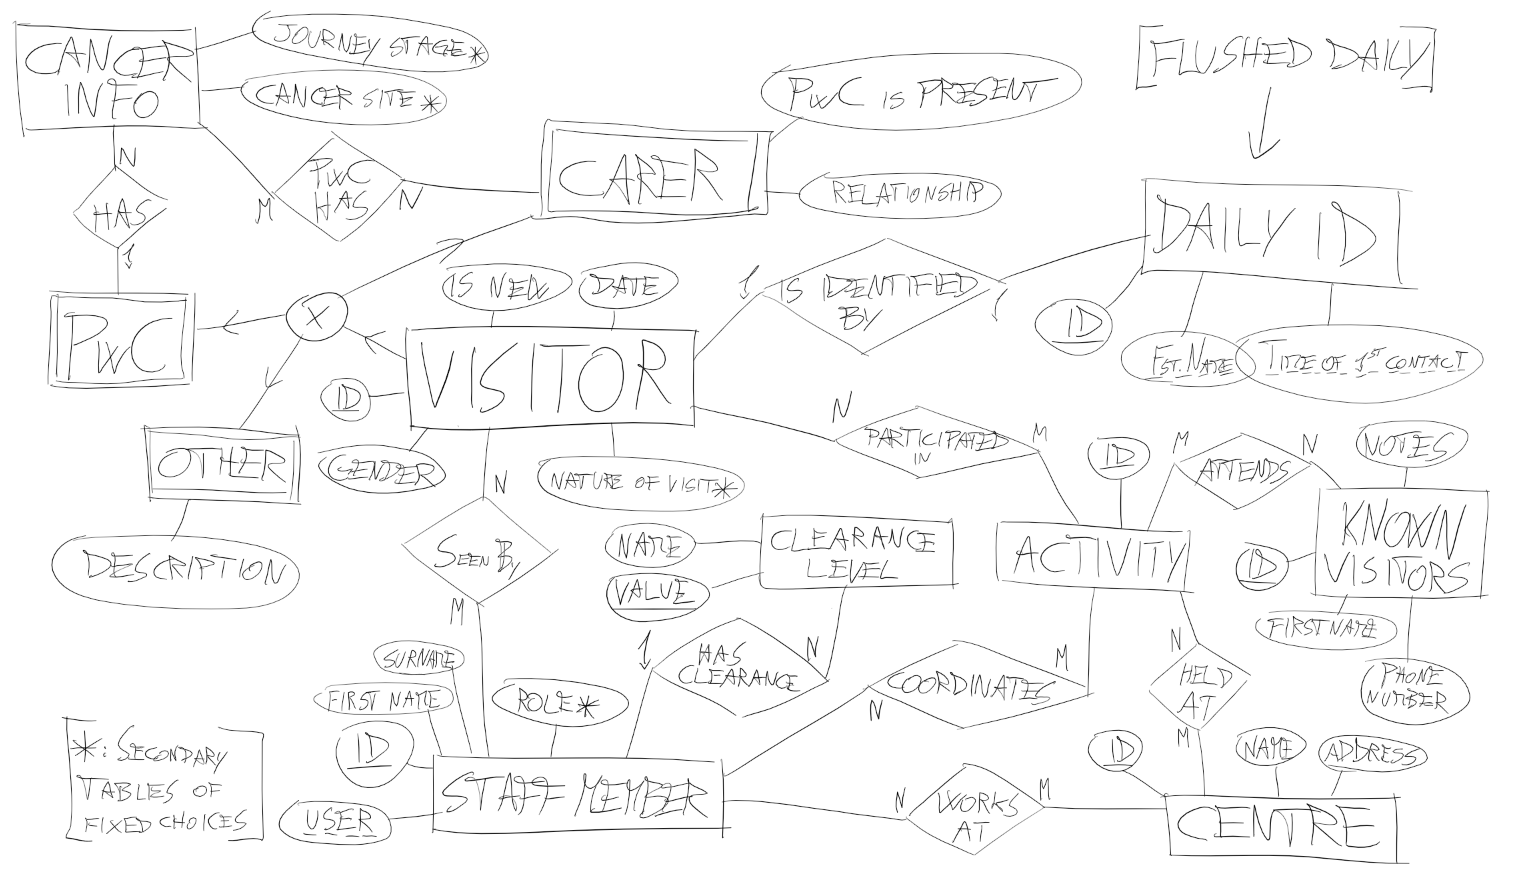 CANCER
INFO
JOURNEY STAGE*
CANCER SITE*
[FLUSHED DAILY]
PwC IS PRESENT
CARER
RELATIONSHIP
PwC
HAS
M
N
N
HAS
1
DAILY ID
ID
EST. NAME
TITLE OF 1ST CONTACT
1
IS IDENTIFIED
BY
1
IS NEW
DATE
X
PwC
VISITOR
ID
GENDER
NATURE OF VISIT*
OTHER
DESCRIPTION
N
PARTICIPATED
IN
M
ID
M
ATTENDS
N
NOTES
KNOWN
VISITORS
ID
FIRST NAME
PHONE
NUMBER
N
SEEN BY
M
NAME
VALUE
CLEARANCE
LEVEL
ACTIVITY
1
HAS
CLEARANCE
N
COORDINATES
M
N
N
HELD
AT
M
SURNAME
FIRST NAME
ID
ROLE*
USER
STAFF MEMBER
N
WORKS
AT
M
ID
NAME
ADDRESS
CENTRE
*: SECONDARY
TABLES OF
FIXED CHOICES